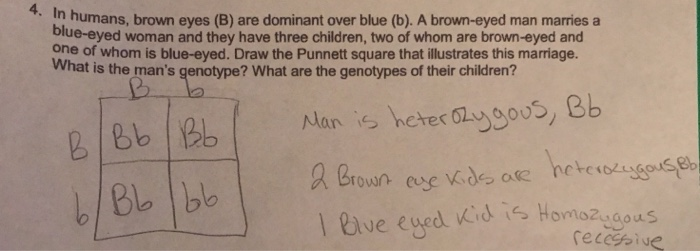 4. In humans, brown eyes (B) are dominant over blue (b). A brown-eyed man marries a
blue-eyed woman and they have three children, two of whom are brown-eyed and
one of whom is blue-eyed. Draw the Punnett square that illustrates this marriage.
What is the man's genotype? What are the genotypes of their children?
B b
B Bb Bb
b Bb bb
Man is heterozygous, Bb
2 Brown eye kids are heterozygous, Bb
1 Blue eyed kid is Homozugous
recessive